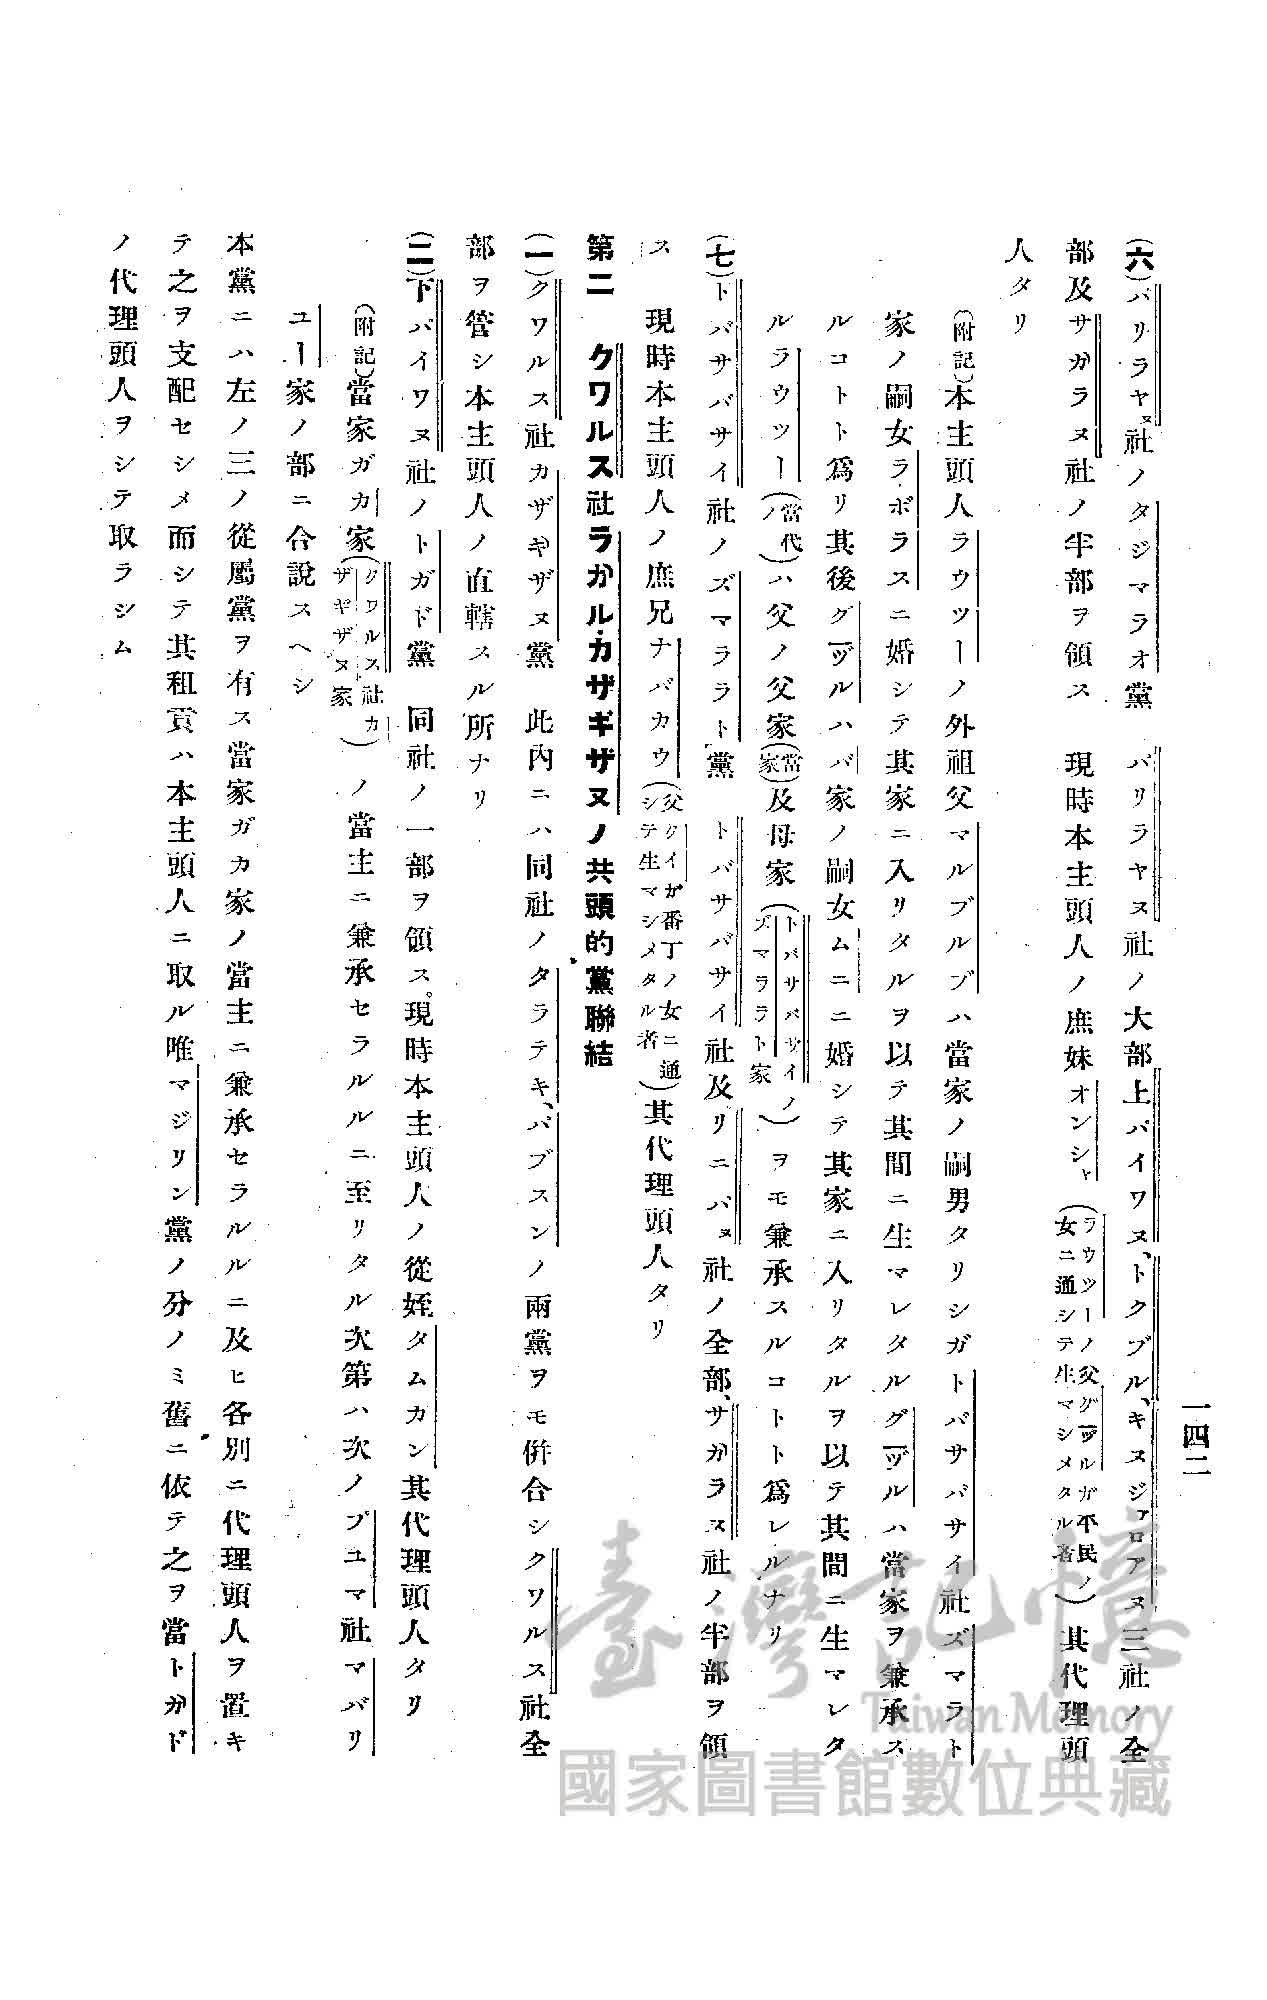 一四二
(六)バリラヤヌ社ノタジマラオ黨　バリラヤヌ社ノ大部上パイワヌ、トクブル、キヌジアロアヌ三社ノ全
部及サガラヌ社ノ半部ヲ領ス　現時本主頭人ノ庶妹オンシャ(ラウツーノ父グヅルガ平民ノ女ニ通シテ生マシメタル者)其代理頭
人タリ
(附記)本主頭人ラウツーノ外祖父マルブルブハ當家ノ嗣男タリシガトバサバサイ社ズマラト
家ノ嗣女ラボラスニ婚シテ其家ニ入リタルヲ以テ其間ニ生マレタルグヅルハ當家ヲ兼承ス
ルコトト爲リ其後グヅルハバ家ノ嗣女ムニニ婚シテ其家ニ入リタルヲ以テ其間ニ生マレタ
ルラウツー(當代ノ)ハ父ノ父家(當家)及母家(トバサバサイノズマララト家)ヲモ兼承スルコトト爲レルナリ
(七)トバサバサイ社ノズマララト黨　トバサバサイ社及リニバヌ社ノ全部、サガラヌ社ノ半部ヲ領
ス　現時本主頭人ノ庶兄ナバカウ(父クイガ番丁ノ女ニ通シテ生マシメタル者)其代理頭人タリ
第二　クワルス社ラガル・カザギザヌノ共頭的黨聯結
(一)クワルス社カザギザヌ黨　此内ニハ同社ノタラテキ、バブスンノ兩黨ヲモ併合シクワルス社全
部ヲ管シ本主頭人ノ直轄スル所ナリ
(二)下パイワヌ社ノトガド黨　同社ノ一部ヲ領ス。現時本主頭人ノ從姪タムカン其代理頭人タリ
(附記)當家ガカ家(クワルス社カザギザヌ家)ノ當主ニ兼承セラルルニ至リタル次第ハ次ノブユマ社マバリ
ユー家ノ部ニ合說スヘシ
本黨ニハ左ノ三ノ從屬黨ヲ有ス當家ガカ家ノ當主ニ兼承セラルルニ及ヒ各別ニ代理頭人ヲ置キ
テ之ヲ支配セシメ而シテ其租貢ハ本主頭人ニ取ル唯マジリン黨ノ分ノミ舊ニ依テ之ヲ當トガド
ノ代理頭人ヲシテ取ラシム
臺灣記憶
Taiwan Memory
國家圖書館數位典藏